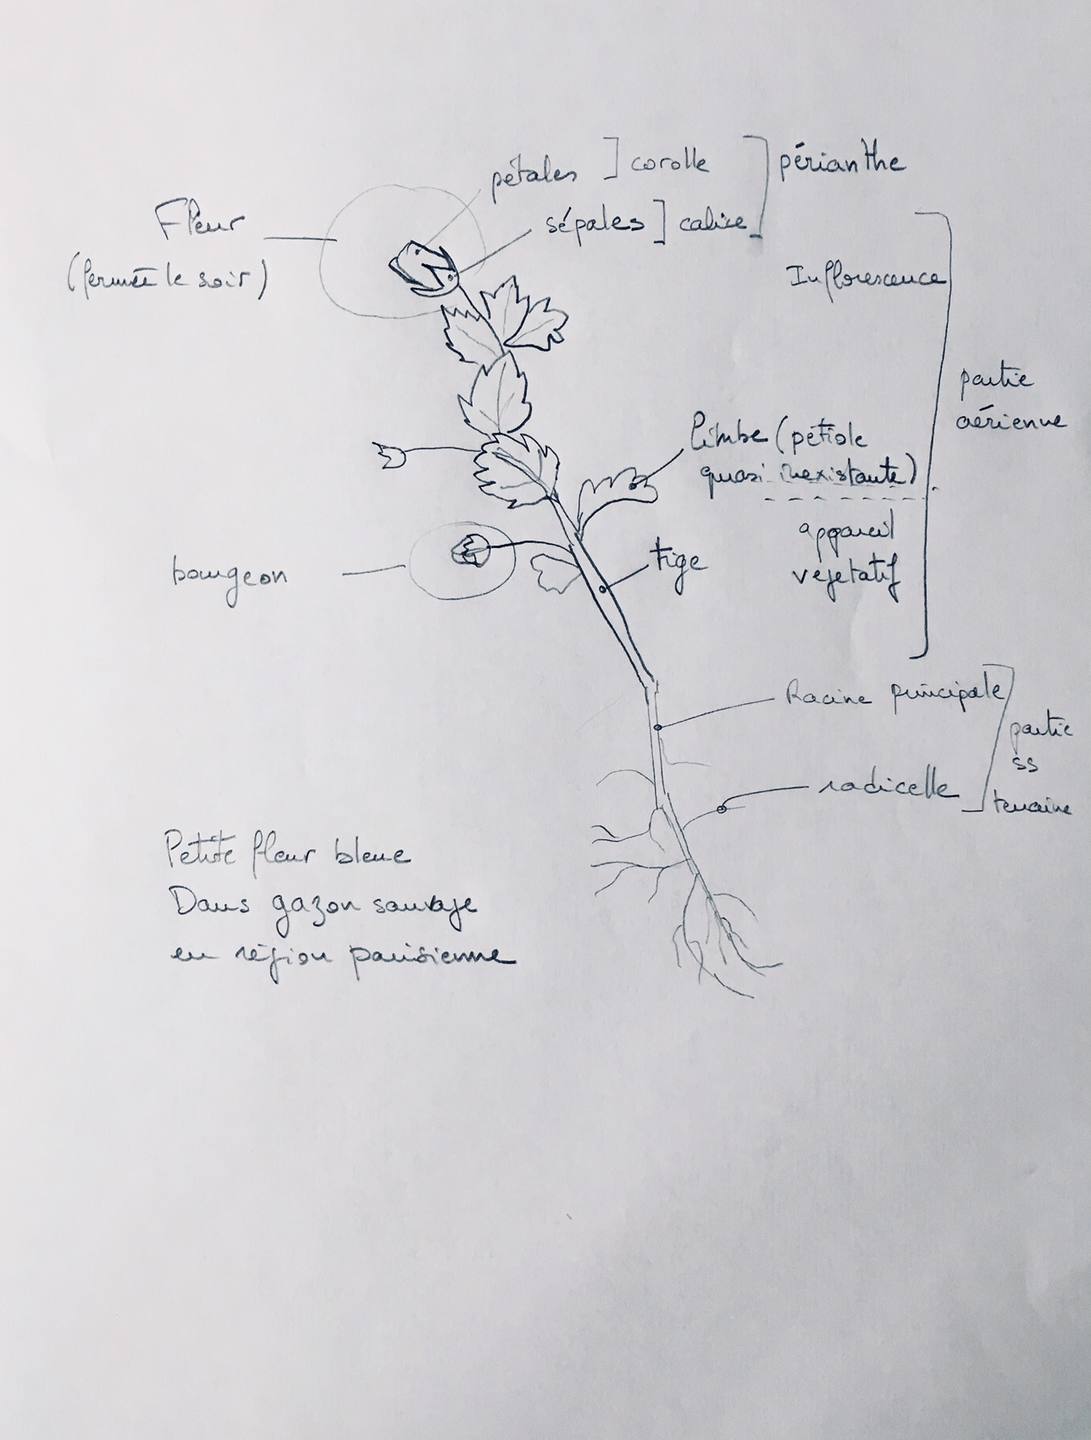 pétales ] corolle ] périanthe
Fleur
sépales ] calice
(fermée le soir)
Inflorescence
partie
aérienne
limbe (pétiole
quasi inexistante)
appareil
végétatif
tige
bourgeon
Racine principale
partie
ss
terraine
radicelle
Petite fleur bleue
Dans gazon sauvage
en région parisienne